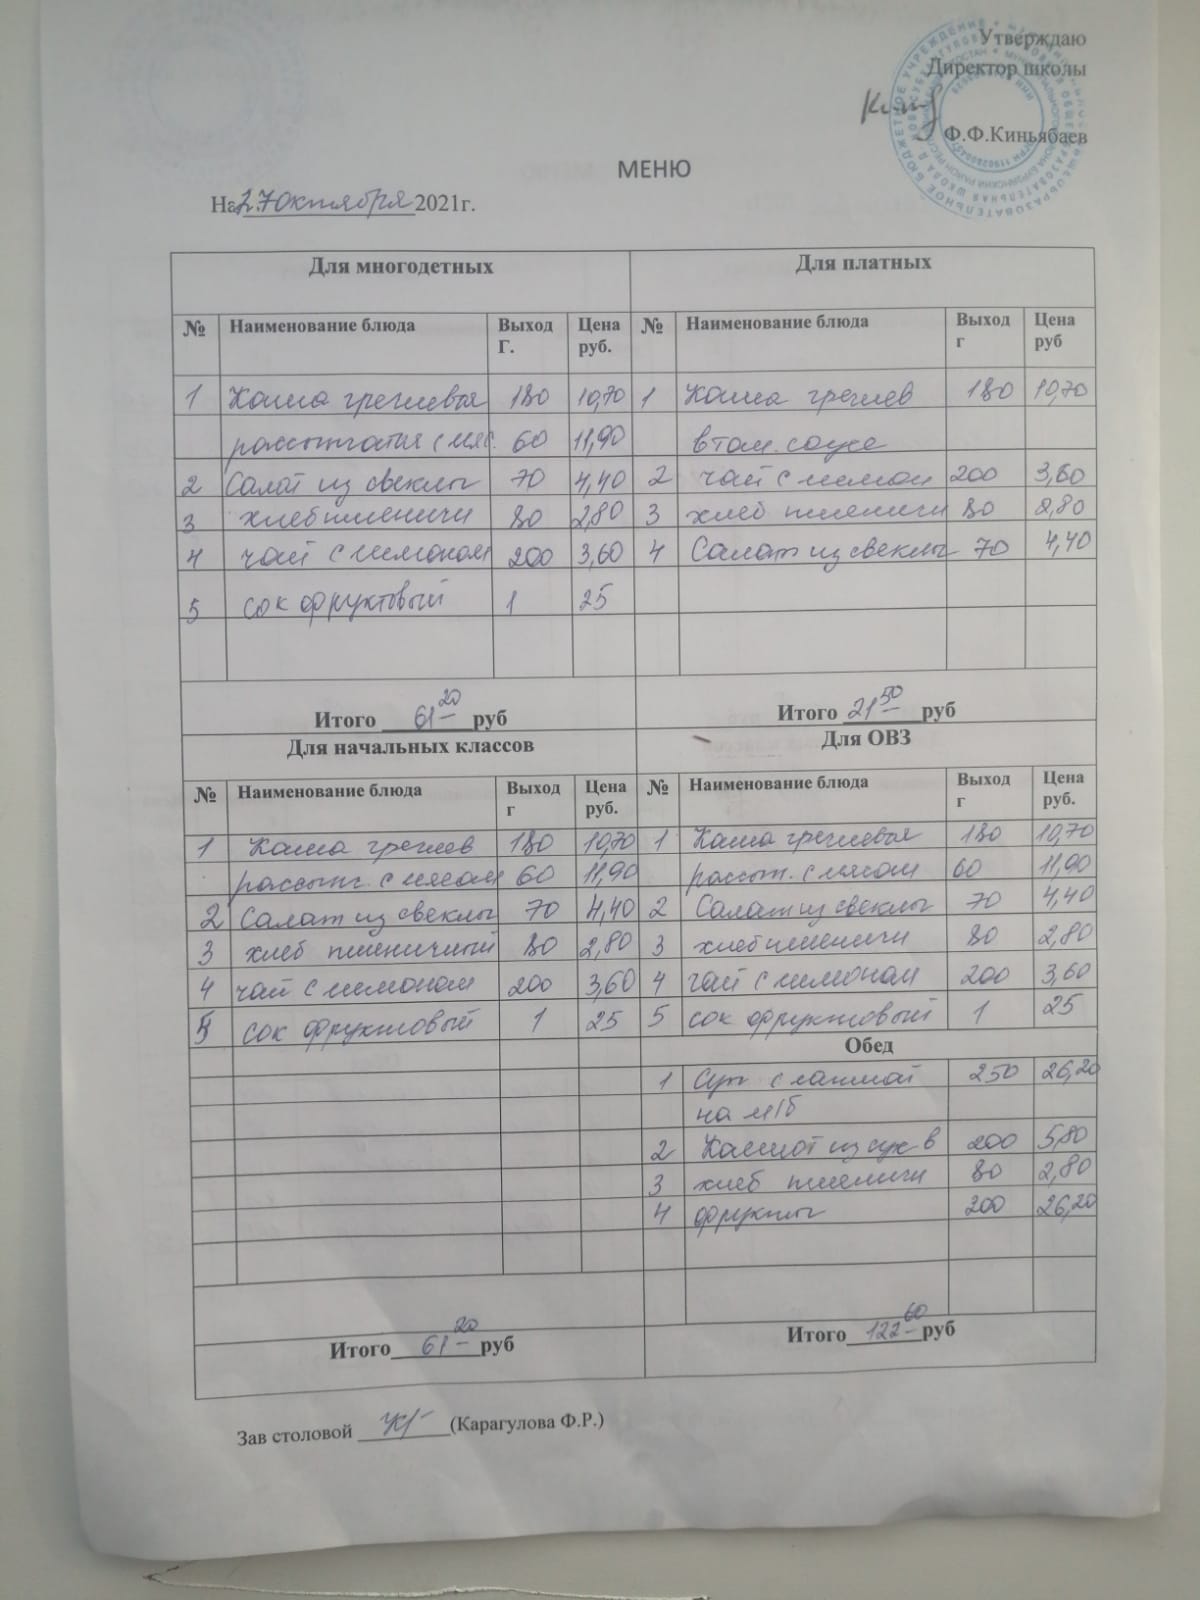 Утверждаю
Директор школы
Ф.Ф.Киньябаев
МЕНЮ
На 27 октября 2021г.
Для многодетных Для платных
№ Наименование блюда Выход Г. Цена руб. № Наименование блюда Выход г Цена руб
1 Каша гречневая 180 10,70 1 Каша гречнев 180 10,70
рассыпчатая с мяс. 60 11,90 в том. соусе
2 Салат из свеклы 70 4,40 2 чай с лимон 200 3,60
3 хлеб пшеничн 80 2,80 3 хлеб пшеничн 80 2,80
4 чай с лимоном 200 3,60 4 Салат из свеклы 70 4,40
5 сок фруктовый 1 25
Итого 61-20 руб Итого 21-50 руб
Для начальных классов Для ОВЗ
№ Наименование блюда Выход г Цена руб. № Наименование блюда Выход г Цена руб.
1 Каша гречнев 180 10,70 1 Каша гречневая 180 10,70
рассып. с мясом 60 11,90 рассып. с мясом 60 11,90
2 Салат из свеклы 70 4,40 2 Салат из свеклы 70 4,40
3 хлеб пшеничный 80 2,80 3 хлеб пшеничн 80 2,80
4 чай с лимоном 200 3,60 4 чай с лимоном 200 3,60
5 сок фруктовый 1 25 5 сок фруктовый 1 25
Обед
1 Суп с лапшой 250 26,20
на м/б
2 Компот из сух в 200 5,80
3 хлеб пшеничн 80 2,80
4 фрукты 200 26,20
Итого 61-20 руб Итого 122-60 руб
Зав столовой (Карагулова Ф.Р.)